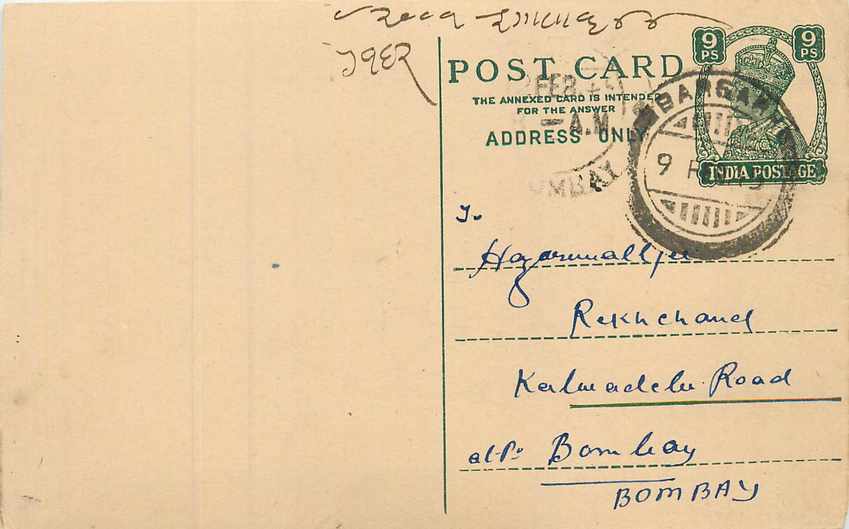 9 PS 9 PS
POST CARD
THE ANNEXED CARD IS INTENDED
FOR THE ANSWER
ADDRESS ONLY
INDIA POSTAGE
FEB
A.M.
BOMBAY
BARGARH
9
To
Hazarimalljee
Rekhchand
Kalwadebi Road
Bombay
BOMBAY